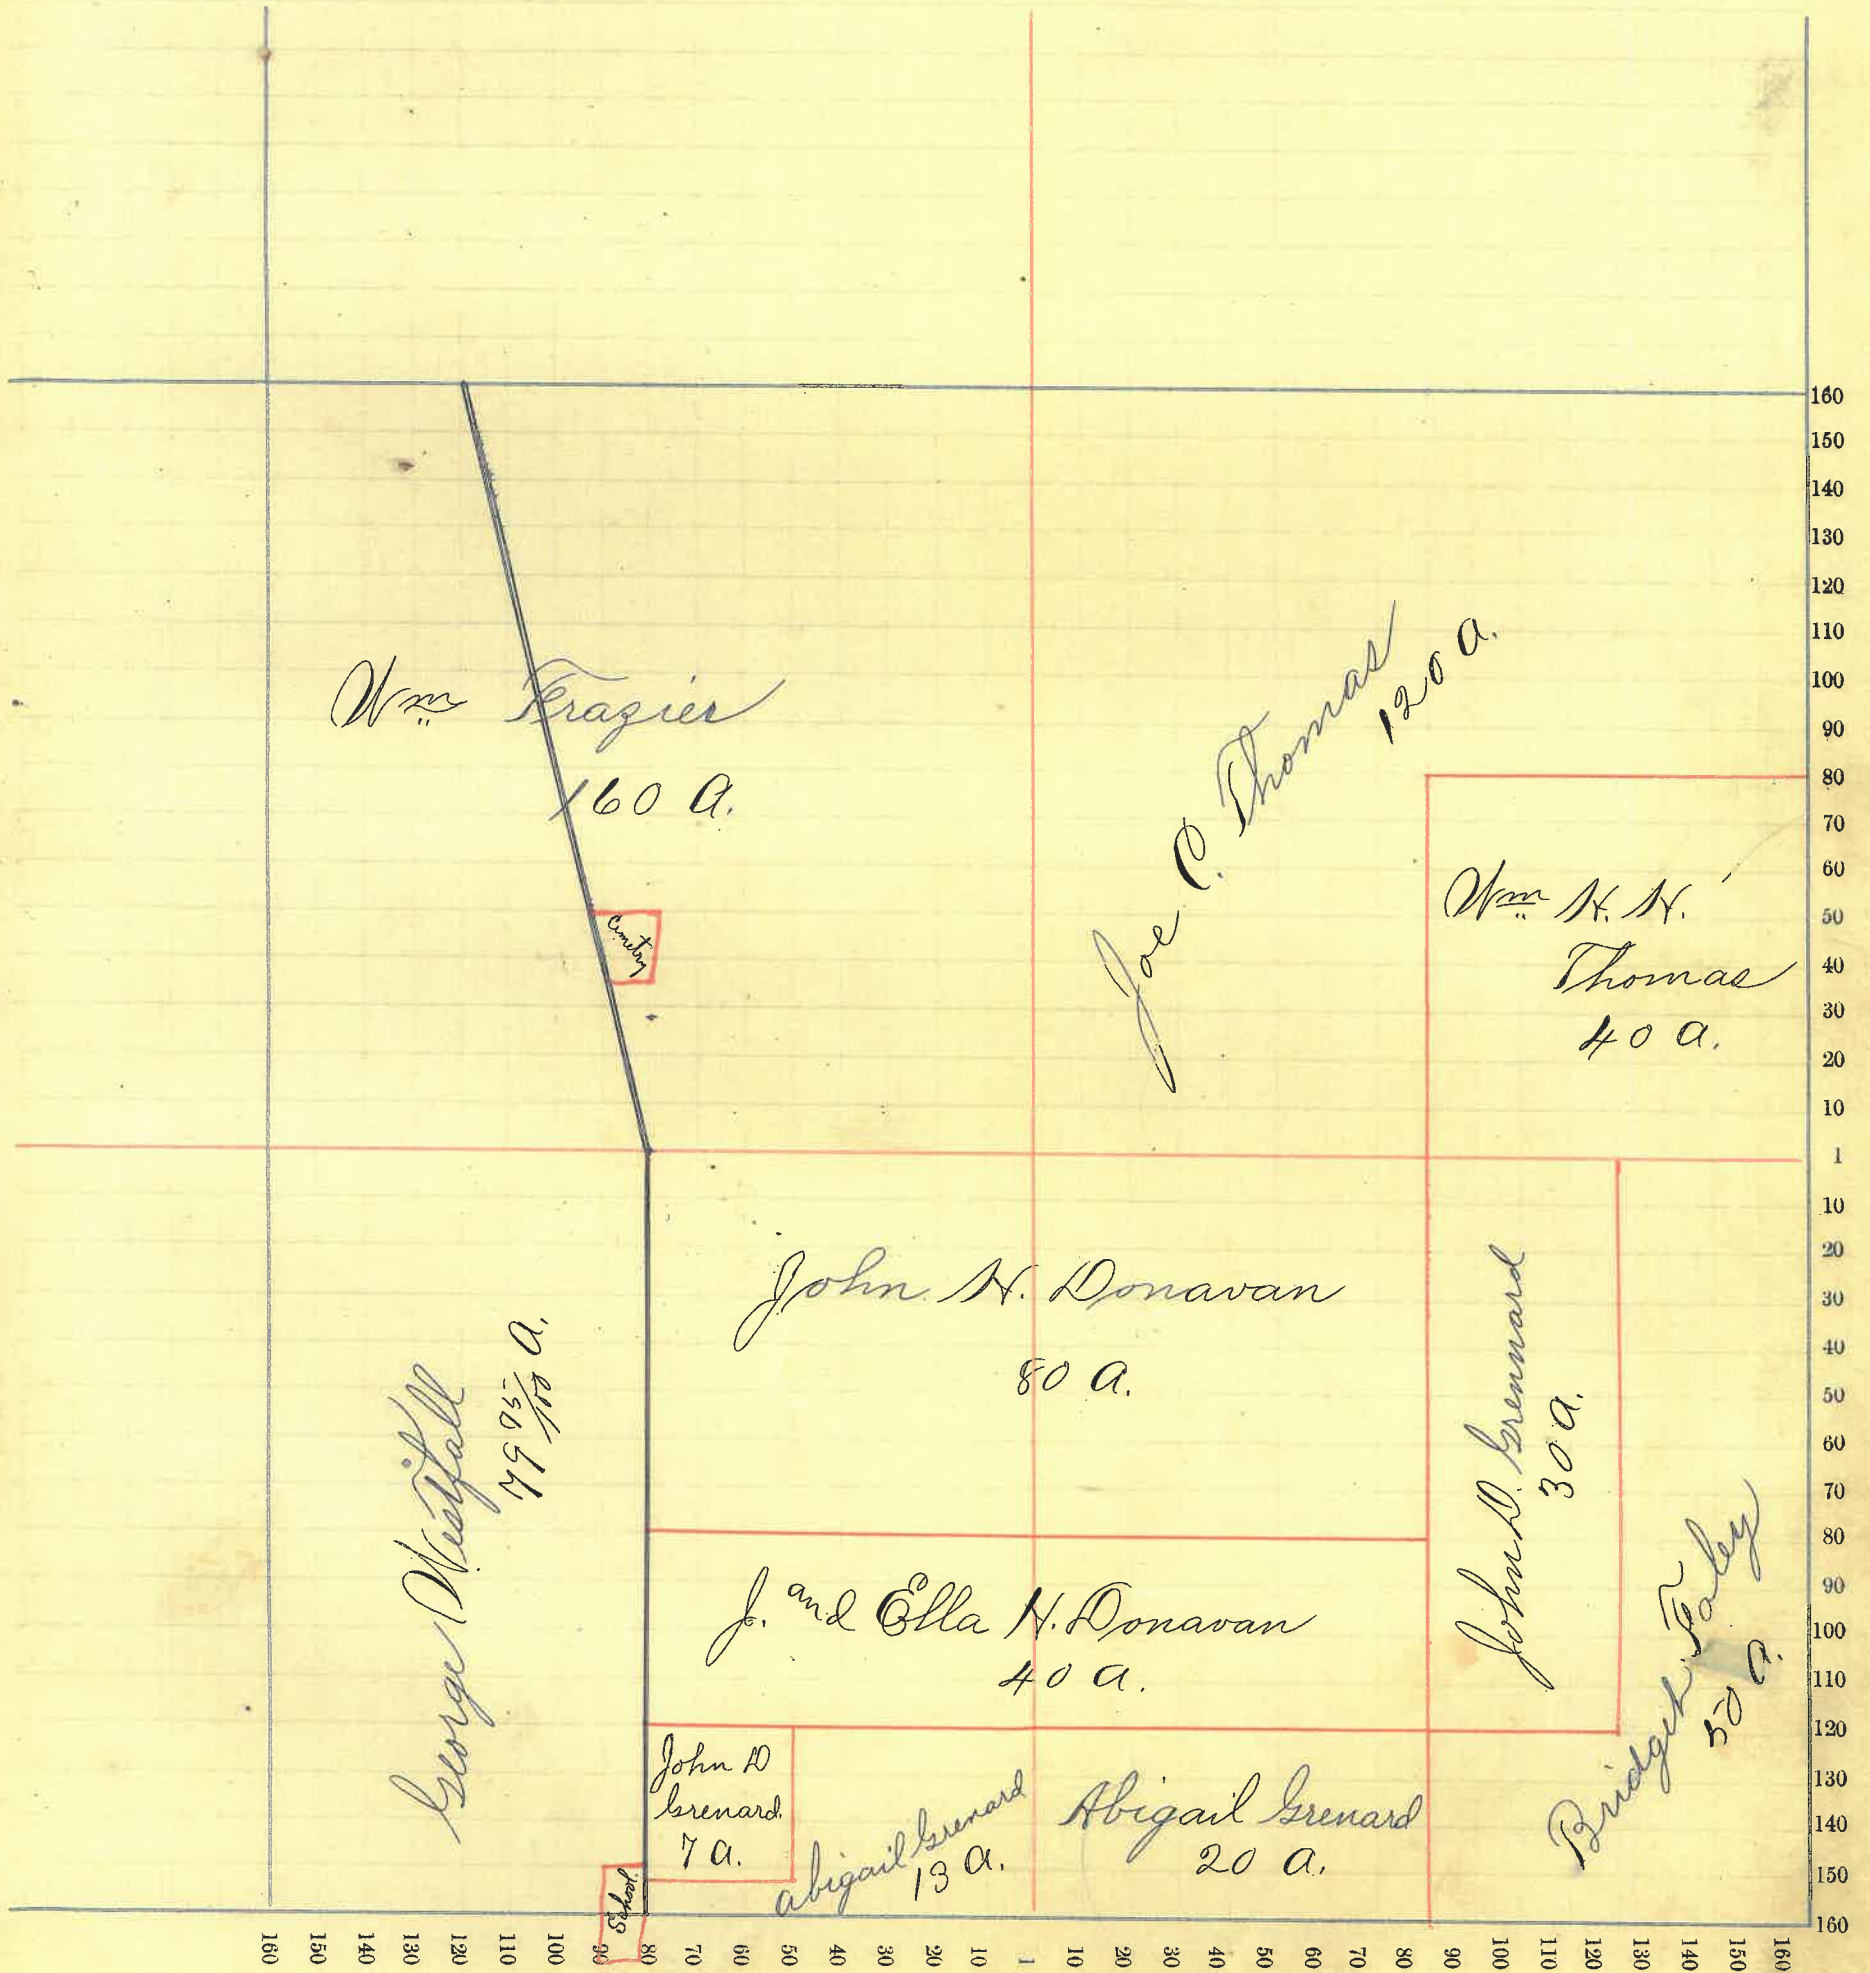 Wm Frazier
160 A.
Cemetry
Joe C. Thomas
120 A.
Wm H. H.
Thomas
40 A.
George Westfall
79 75/100 A.
John H. Donavan
80 A.
J. and Ella H. Donavan
40 A.
John D. Grennard
30 A.
Bridget Faley
50 A.
John D
Grenard
7 A.
Abigail Grenard
13 A.
Abigail Grenard
20 A.
School
160
150
140
130
120
110
100
90
80
70
60
50
40
30
20
10
1
10
20
30
40
50
60
70
80
90
100
110
120
130
140
150
160
160 150 140 130 120 110 100 90 80 70 60 50 40 30 20 10 1 10 20 30 40 50 60 70 80 90 100 110 120 130 140 150 160